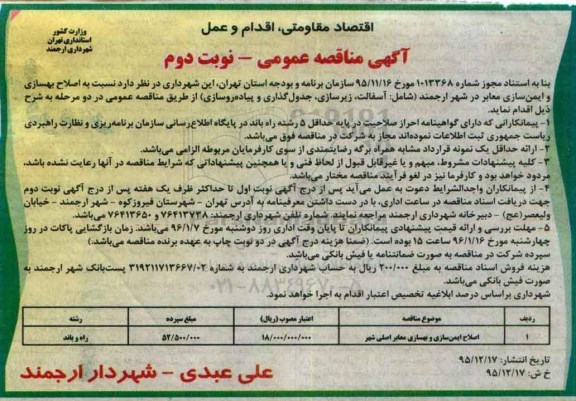 اقتصاد مقاومتی، اقدام و عمل
وزارت کشور
استانداری تهران
شهرداری ارجمند
آگهی مناقصه عمومی - نوبت دوم
بنا به استناد مجوز شماره ۱۰۱۳۳۶۸ مورخ ۹۵/۱۱/۱۶ سازمان برنامه و بودجه استان تهران، این شهرداری در نظر دارد نسبت به اصلاح بهسازی
و ایمن‌سازی معابر در شهر ارجمند (شامل: آسفالت، زیرسازی، جدول‌گذاری و پیاده‌روسازی) از طریق مناقصه عمومی در دو مرحله به شرح
ذیل اقدام نماید.
۱- پیمانکارانی که دارای گواهینامه احراز صلاحیت در پایه حداقل ۵ رشته راه باند در پایگاه اطلاع‌رسانی سازمان برنامه‌ریزی و نظارت راهبردی
ریاست جمهوری ثبت اطلاعات نموده‌اند مجاز به شرکت در مناقصه فوق می‌باشد.
۲- ارائه حداقل یک نمونه قرارداد مشابه همراه برگه رضایتمندی از سوی کارفرمایان مربوطه الزامی می‌باشد.
۳- کلیه پیشنهادات مشروط، مبهم و یا غیرقابل قبول از لحاظ فنی و یا همچنین پیشنهاداتی که شرایط مناقصه در آنها رعایت نشده باشد،
مردود خواهد بود و کارفرما نیز در لغو فرآیند مناقصه مختار می‌باشد.
۴- از پیمانکاران واجدالشرایط دعوت به عمل می‌آید پس از درج آگهی نوبت اول تا حداکثر ظرف یک هفته پس از درج آگهی نوبت دوم
جهت دریافت اسناد مناقصه در ساعت اداری، با در دست داشتن معرفینامه به آدرس تهران - شهرستان فیروزکوه - شهر ارجمند - خیابان
ولیعصر(عج) - دبیرخانه شهرداری ارجمند مراجعه نمایند. شماره تلفن شهرداری ارجمند: ۷۶۴۱۳۷۳۸ و ۷۶۴۱۳۶۵۰ می‌باشد.
۵- مهلت بررسی و ارائه قیمت پیشنهادی پیمانکاران تا پایان وقت اداری روز دوشنبه مورخ ۹۶/۱/۷ می‌باشد. زمان بازگشایی پاکات در روز
چهارشنبه مورخ ۹۶/۱/۱۶ ساعت ۱۵ بوده است. (ضمنا هزینه درج آگهی در دو نوبت چاپ به عهده برنده مناقصه می‌باشد.)
سپرده شرکت در مناقصه به صورت ضمانتنامه یا فیش بانکی می‌باشد.
هزینه فروش اسناد مناقصه به مبلغ ۲۰۰/۰۰۰ ریال به حساب شهرداری ارجمند به شماره ۳۱۹۲۱۱۷۱۳۶۶۷/۰۲ پست‌بانک شهر ارجمند به
صورت فیش بانکی می‌باشد.
شهرداری براساس درصد ابلاغیه تخصیص اعتبار اقدام به اجرا خواهد نمود.
ردیف موضوع مناقصه اعتبار مصوب (ریال) مبلغ سپرده رشته
۱ اصلاح ایمن‌سازی و بهسازی معابر اصلی شهر ۱۸/۰۰۰/۰۰۰/۰۰۰ ۵۲/۵۰۰/۰۰۰ راه و باند
تاریخ انتشار: ۹۵/۱۲/۱۷
خ ش: ۹۵/۱۲/۱۷
علی عبدی - شهردار ارجمند